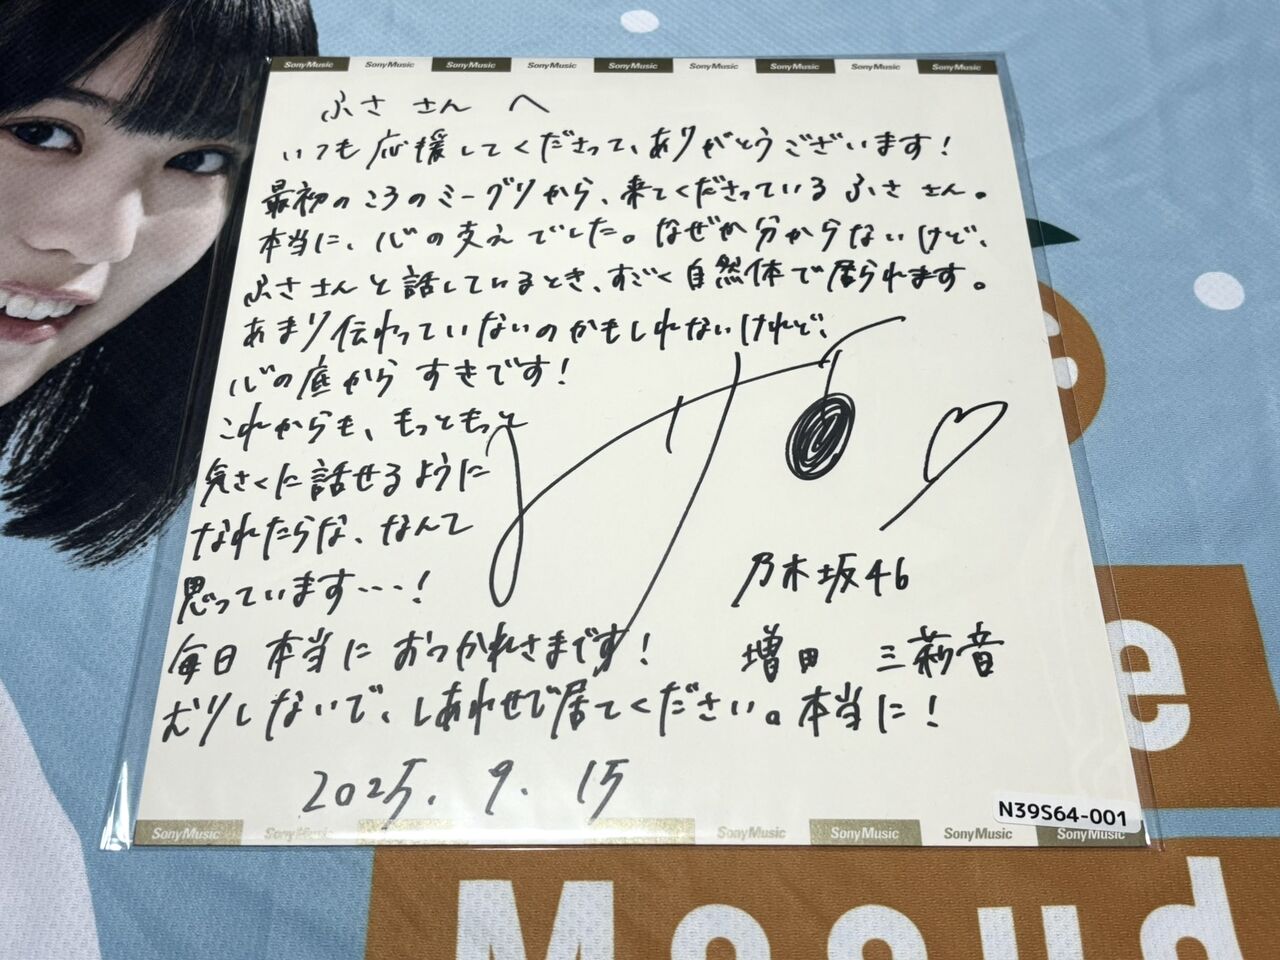 SonyMusic SonyMusic SonyMusic SonyMusic SonyMusic SonyMusic SonyMusic SonyMusic SonyMusic
ふささんへ
いつも応援してくださって、ありがとうございます!
最初のころのミーグリから、来てくださっているふささん。
本当に、心の支えでした。なぜか分からないけど、
ふささんと話しているとき、すごく自然体で居られます。
あまり伝わっていないのかもしれないけれど、
心の底からすきです!
これからも、もっともっと
気さくに話せるように
なれたらな、なんて
思っています…!
乃木坂46
毎日本当におつかれさまです!
増田 三莉音
ムリしないで、しあわせで居てください。本当に!
2025. 9. 15
N39S64-001
SonyMusic SonyMusic SonyMusic SonyMusic SonyMusic SonyMusic